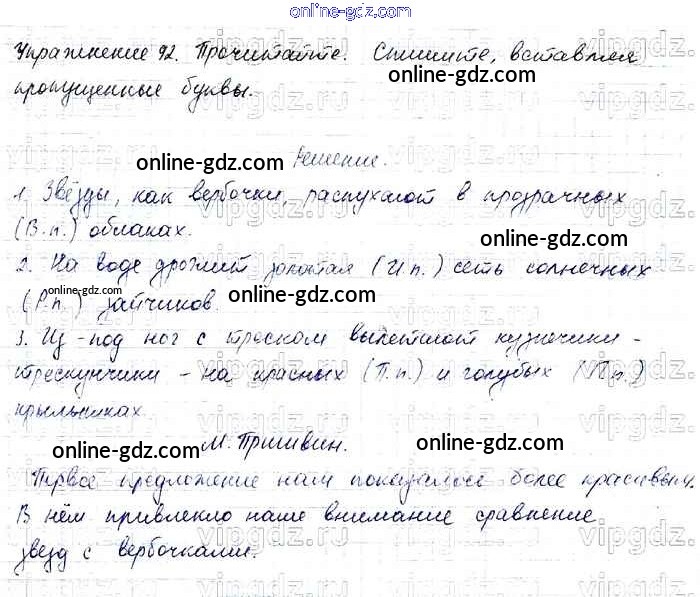 online-gdz.com
Упражнение 92. Прочитайте. Спишите, вставляя
online-gdz.com
пропущенные буквы.
Решение.
online-gdz.com
1. Звёзды, как вербочки, распухают в прозрачных
(В.п.) облаках.
online-gdz.com
2. На воде дрожит золотая (И.п.) сеть солнечных
online-gdz.com
(Р.п.) зайчиков.
online-gdz.com
3. Из-под ног с треском вылетают кузнечики-
трескунчики - на красных (П.п.) и голубых (П.п.)
online-gdz.com
крылышках.
М. Пришвин.
online-gdz.com
online-gdz.com
Первое предложение нам показалось более красивым.
В нём привлекло наше внимание сравнение
звезд с вербочками.
online-gdz.com